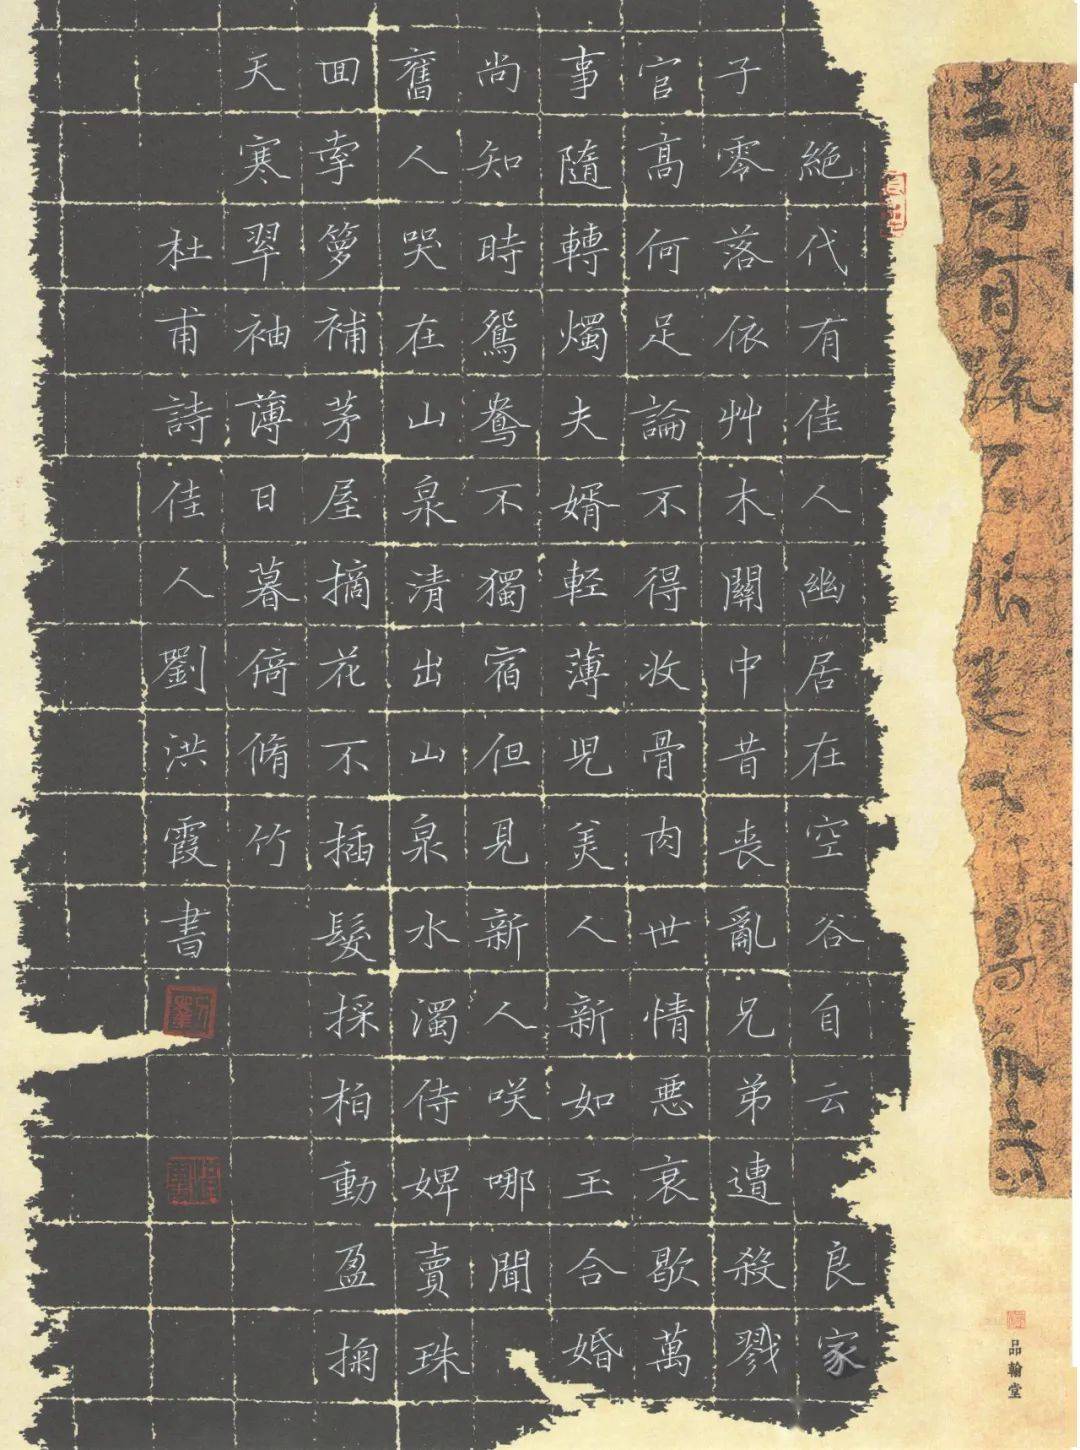 絶代有佳人幽居在空谷自云良家
子零落依艸木關中昔丧亂兄弟遭殺戮
官高何足論不得收骨肉世情悪衰歇萬
事隨轉燭夫婿軽薄児美人新如玉合婚
尚知時鴛鴦不獨宿但見新人咲哪聞
舊人哭在山泉清出山泉水濁侍婢賣珠
囬牽蘿補茅屋摘花不插髮採柏動盈掬
天寒翠袖薄日暮倚脩竹
杜甫詩佳人劉洪霞書
品翰堂